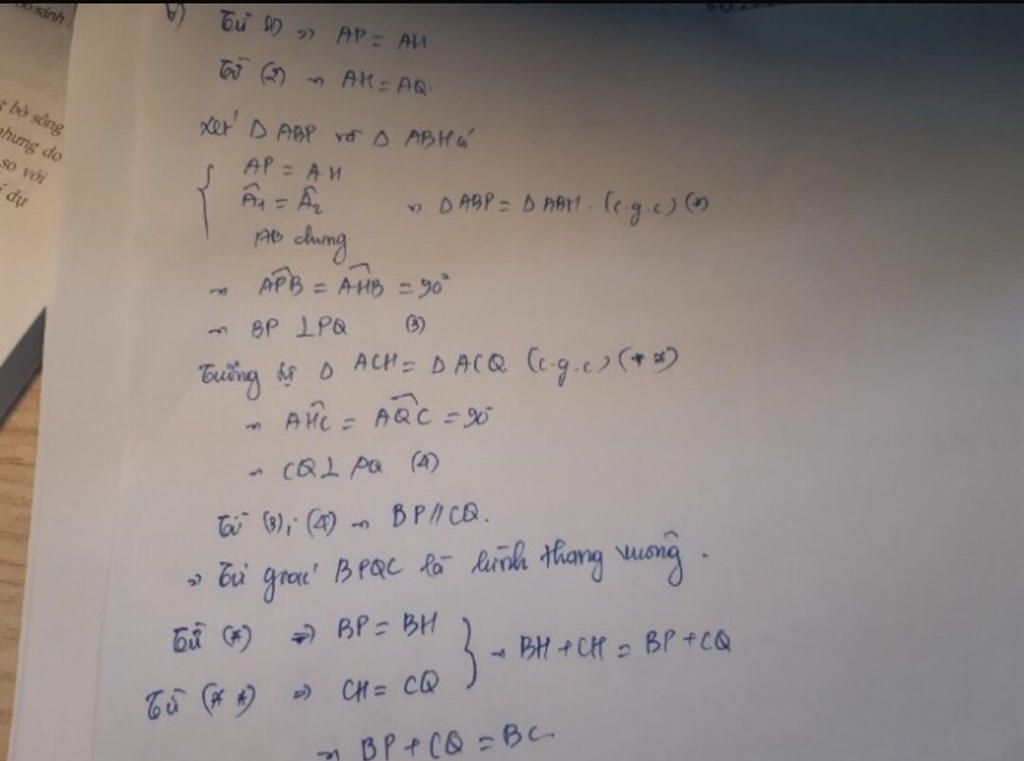 ò sánh
g bờ sông
nhưng do
so với
í dụ
b) Từ (1) => AP = AH
Từ (2) => AH = AQ.
Xét Δ ABP và Δ ABH có
AP = AH
Â1 = Â2 => Δ ABP = Δ ABH. (c.g.c) (*)
AB chung
=> APB = AHB = 90°
=> BP ⊥ PQ (3)
Tương tự Δ ACH = Δ ACQ (c.g.c) (**)
=> AHC = AQC = 90°
=> CQ ⊥ PQ (4)
Từ (3), (4) => BP // CQ.
=> Tứ giác BPQC là hình thang vuông.
Từ (*) => BP = BH
=> BH + CH = BP + CQ
Từ (**) => CH = CQ
=> BP + CQ = BC.